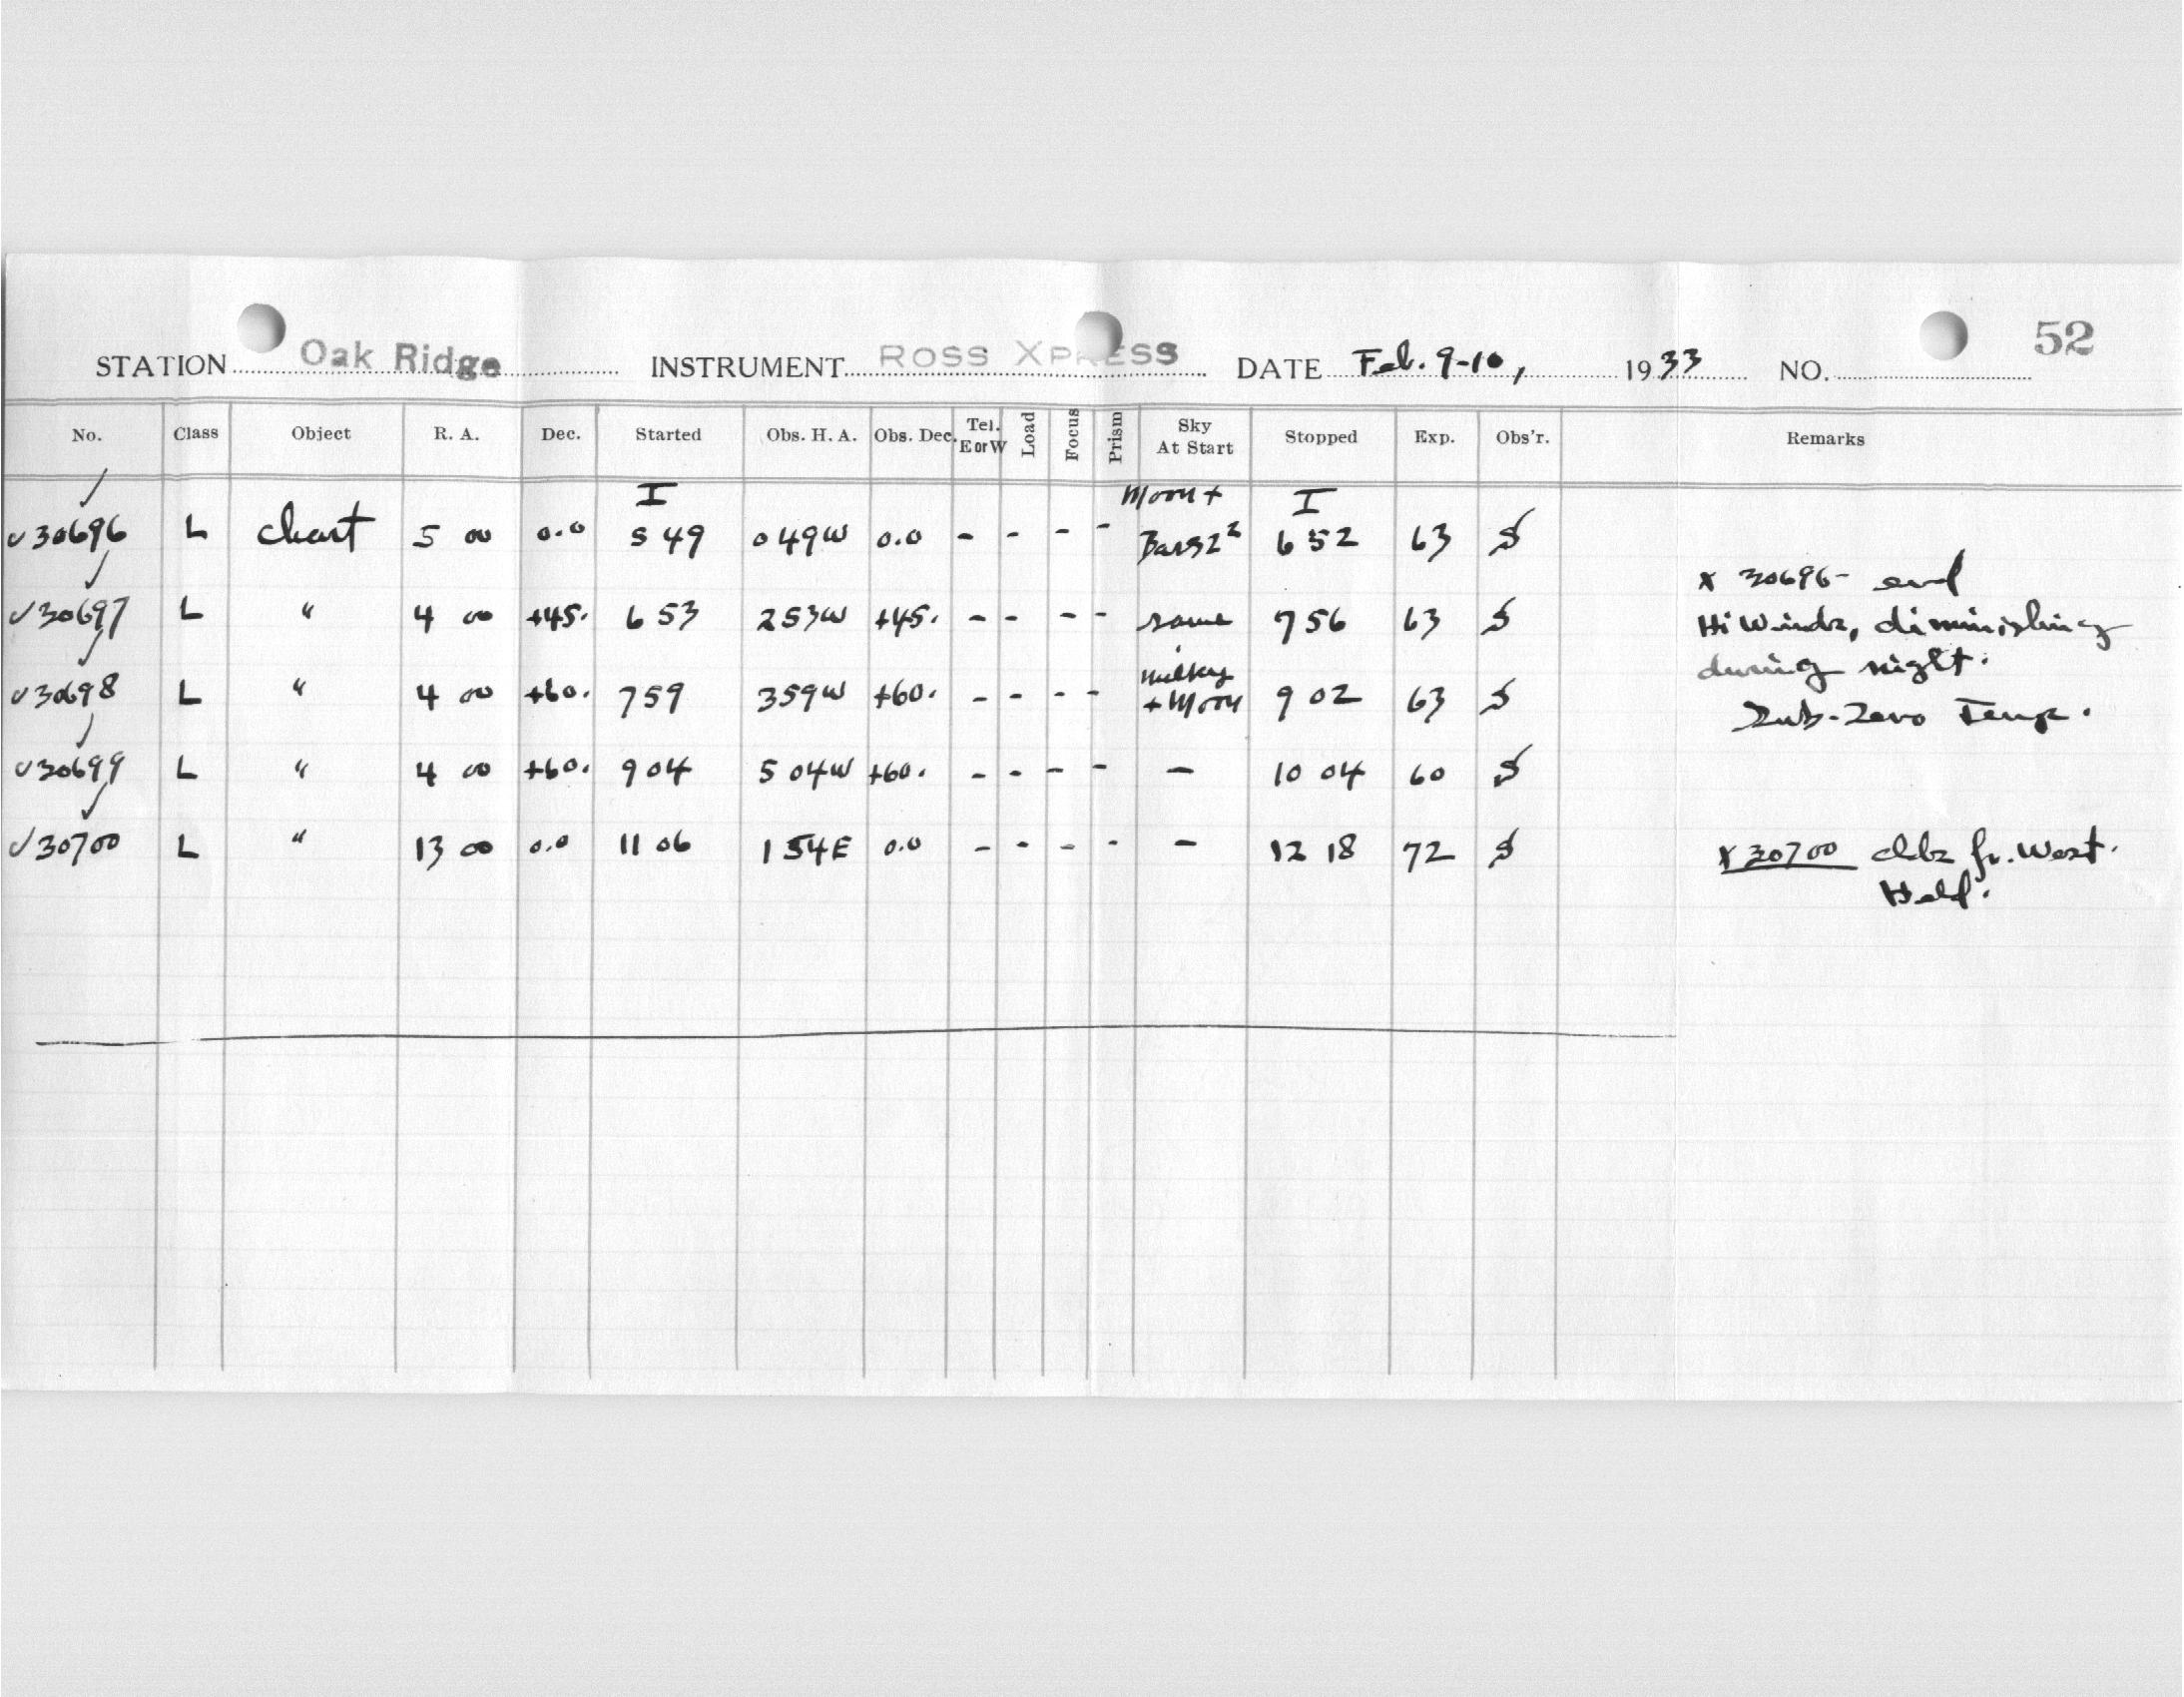 52
STATION Oak Ridge INSTRUMENT ROSS XPRESS DATE Feb. 9-10, 1933 NO.
No. Class Object R. A. Dec. Started Obs. H. A. Obs. Dec. Tel. E or W Load Focus Prism Sky At Start Stopped Exp. Obs'r. Remarks
I Moon + I
30696 L chart 5 00 0.0 5 49 0 49W 0.0 - - - - 6 52 63 S
x 30696- end
30697 L " 4 00 +45. 6 53 2 53W +45. - - - - same 7 56 63 S Hi Winds, diminishing
during night.
30698 L " 4 00 +60. 7 59 3 59W +60. - - - - milky + Moon 9 02 63 S
Sub-Zero Temp.
30699 L " 4 00 +60. 9 04 5 04W +60. - - - - - 10 04 60 S
30700 L " 13 00 0.0 11 06 1 54E 0.0 - - - - - 12 18 72 S x 30700 clds fr. West.
Held.